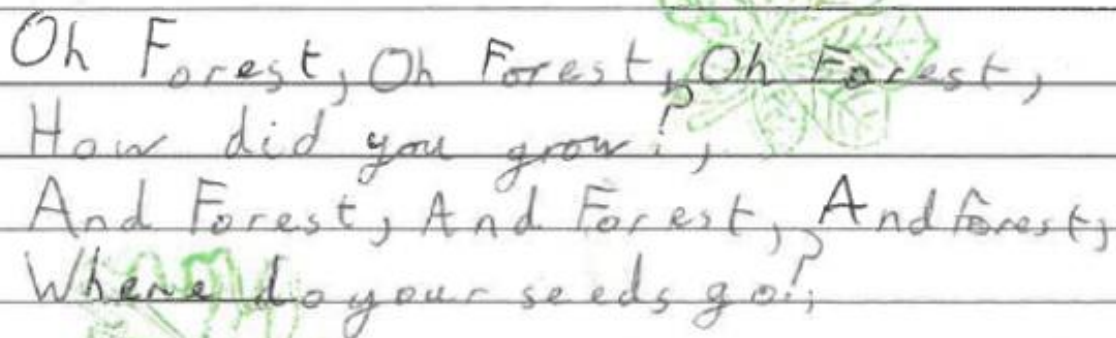 Oh Forest, Oh Forest, Oh Forest,
How did you grow?,
And Forest, And Forest, And forest,
Where do your seeds go?,